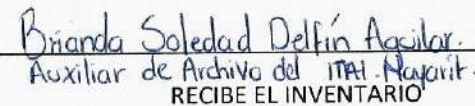 Brianda Soledad Delfín Aguilar.
Auxiliar de Archivo del ITAI. Nayarit.
RECIBE EL INVENTARIO